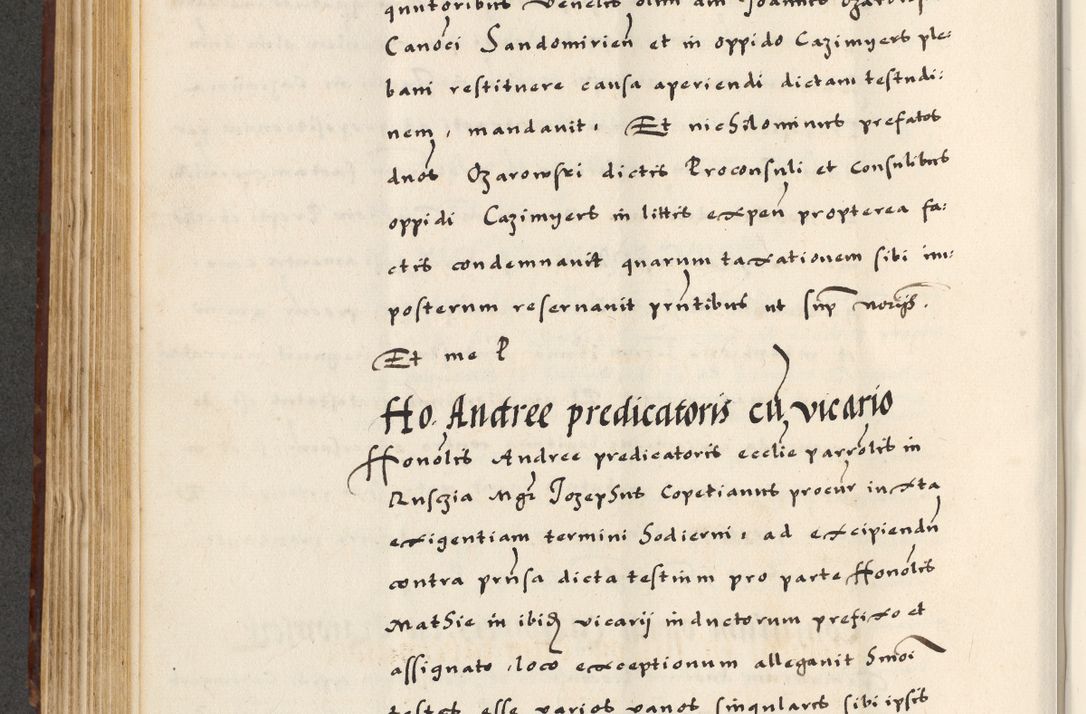 Canoci Sandomirien et in oppido Cazimyers ple:
bani restituere causa aperiendi dictam testudi:
nem, mandavit. Et nichilominus prefatos
dnos Ozarowski dictis Proconsuli et Consulibus
oppidi Cazimyers in littis expen propterea fa:
ctis condemnavit quarum taxationem sibi im:
posterum reservavit pntibus ut sup
Et me P
Ho. Andree predicatoris cu vicario
Honolis Andree predicatoris ecclie parrolis in
Ruszia Mgr Jozephus Copetianus procur iuxta
exigentiam termini hodierni, ad excipiendu
contra pnsa dicta testium pro parte Honolis
Mathie in ibid vicarii inductorum prefixo et
assignato loco exceptionum allegavit hmoi
testes esse varios vanos singulares sibi ipsis